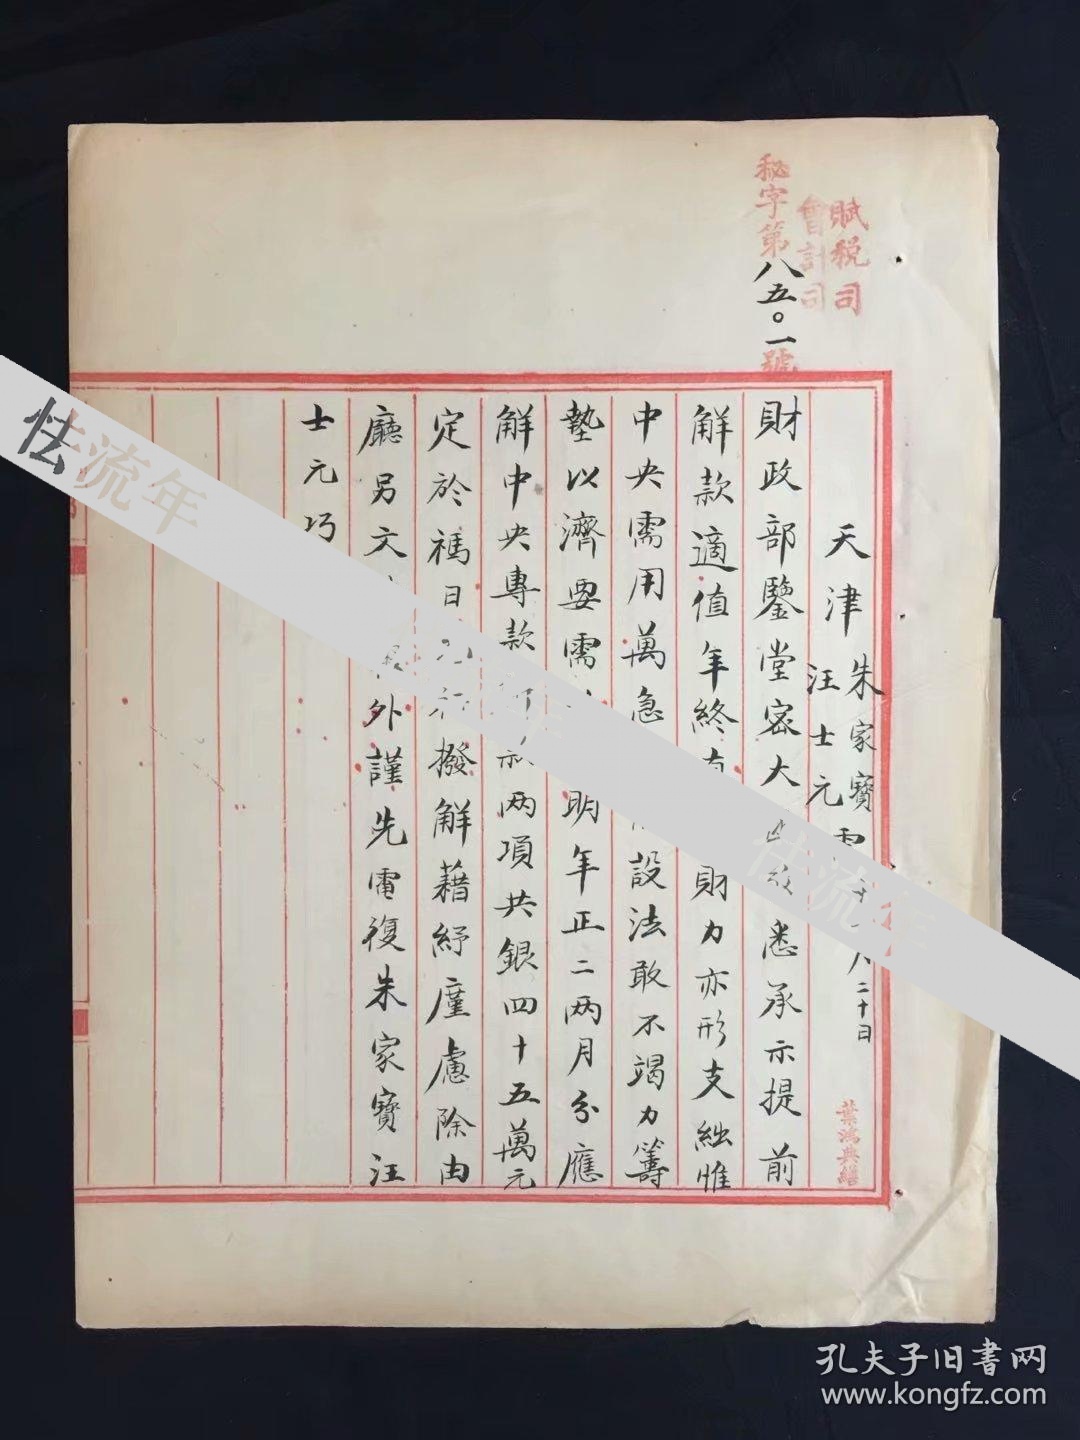 賦稅司
會計司
秘字第八五〇一號
天津朱家寶
汪士元
月二十日
葉鴻典繕
財政部鑒堂密大悉承示提前
解款適值年終財力亦形支絀惟
中央需用萬急設法敢不竭力籌
墊以濟要需明年正二兩月分應
解中央專款兩項共銀四十五萬元
定於禡日撥解藉紓廑慮除由
廳另文外謹先電復朱家寶汪
士元巧
怯流年
怯流年
孔夫子旧書网
www.kongfz.com